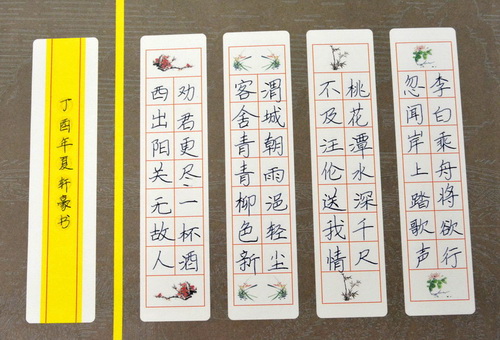 李白乘舟将欲行
忽闻岸上踏歌声
桃花潭水深千尺
不及汪伦送我情
渭城朝雨浥轻尘
客舍青青柳色新
劝君更尽一杯酒
西出阳关无故人
丁酉年夏轩豪书